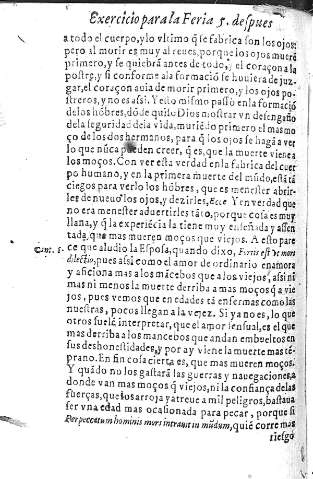 Exercicio para la Feria 5. despues
a todo el cuerpo, y lo vltimo q̃ se fabrica son los ojos:
pero al morir es muy al reues, porque los ojos mueré
primero, y se quiebrã antes de todo, y el coraçon a la
postre, y si conforme a la formació se huuiera de juz-
gar, el coraçon auia de morir primero, y los ojos po-
streros, y no es assi. Y esto mismo passò en la formació
de los hóbres, dó de quiso Dios mostrar vn desengaño
de la seguridad de la vida, murió lo primero el mas mo
ço de los dos hermanos, para q̃ los ojos se hagã a ver
lo que núca pueden creer, q̃ es, que la muerte viene a
los moços. Con ver esta verdad en la fabrica del cuer
po humano, y en la primera muerte del múdo, está tã
ciegos para verlo los hóbres, que es menester abrir-
les de nueuo los ojos, y dezirles, Ecce. Y en verdad que
no era menester aduertirles táto, porque cosa es muy
llana, y q̃ la experiécia la tiene muy enseñada y assen
tada, que mas mueren moços que viejos. A esto pare
Cant. 8. ce que aludio la Esposa, quando dixo, Fortis est vt mors
dilectio, pues assi como el amor de ordinario enamora
y aficiona mas a los mácebos que a los viejos, assi ni
mas ni menos la muerte derriba a mas moços q̃ a vie
jos, pues vemos que en edades tá enfermas como las
nuestras, pocos llegan a la vejez. Si ya no es, lo que
otros suelé interpretar, que el amor sensual, es el que
mas derriba a los mancebos que andan embueltos en
sus deshonestidades, y por ay viene la muerte mas té-
prano. En fin cosa cierta es, que mas mueren moços.
Y quãdo no los gastarã las guerras y nauegaciones, a
donde van mas moços q̃ viejos, ni la confiança de las
fuerças, que los arroja y atreue a mil peligros, bastaua
ser vna edad mas ocasionada para pecar, porque si
Per peccatum hominis mors intrauit in mūdum, quié corre mas
riesgo